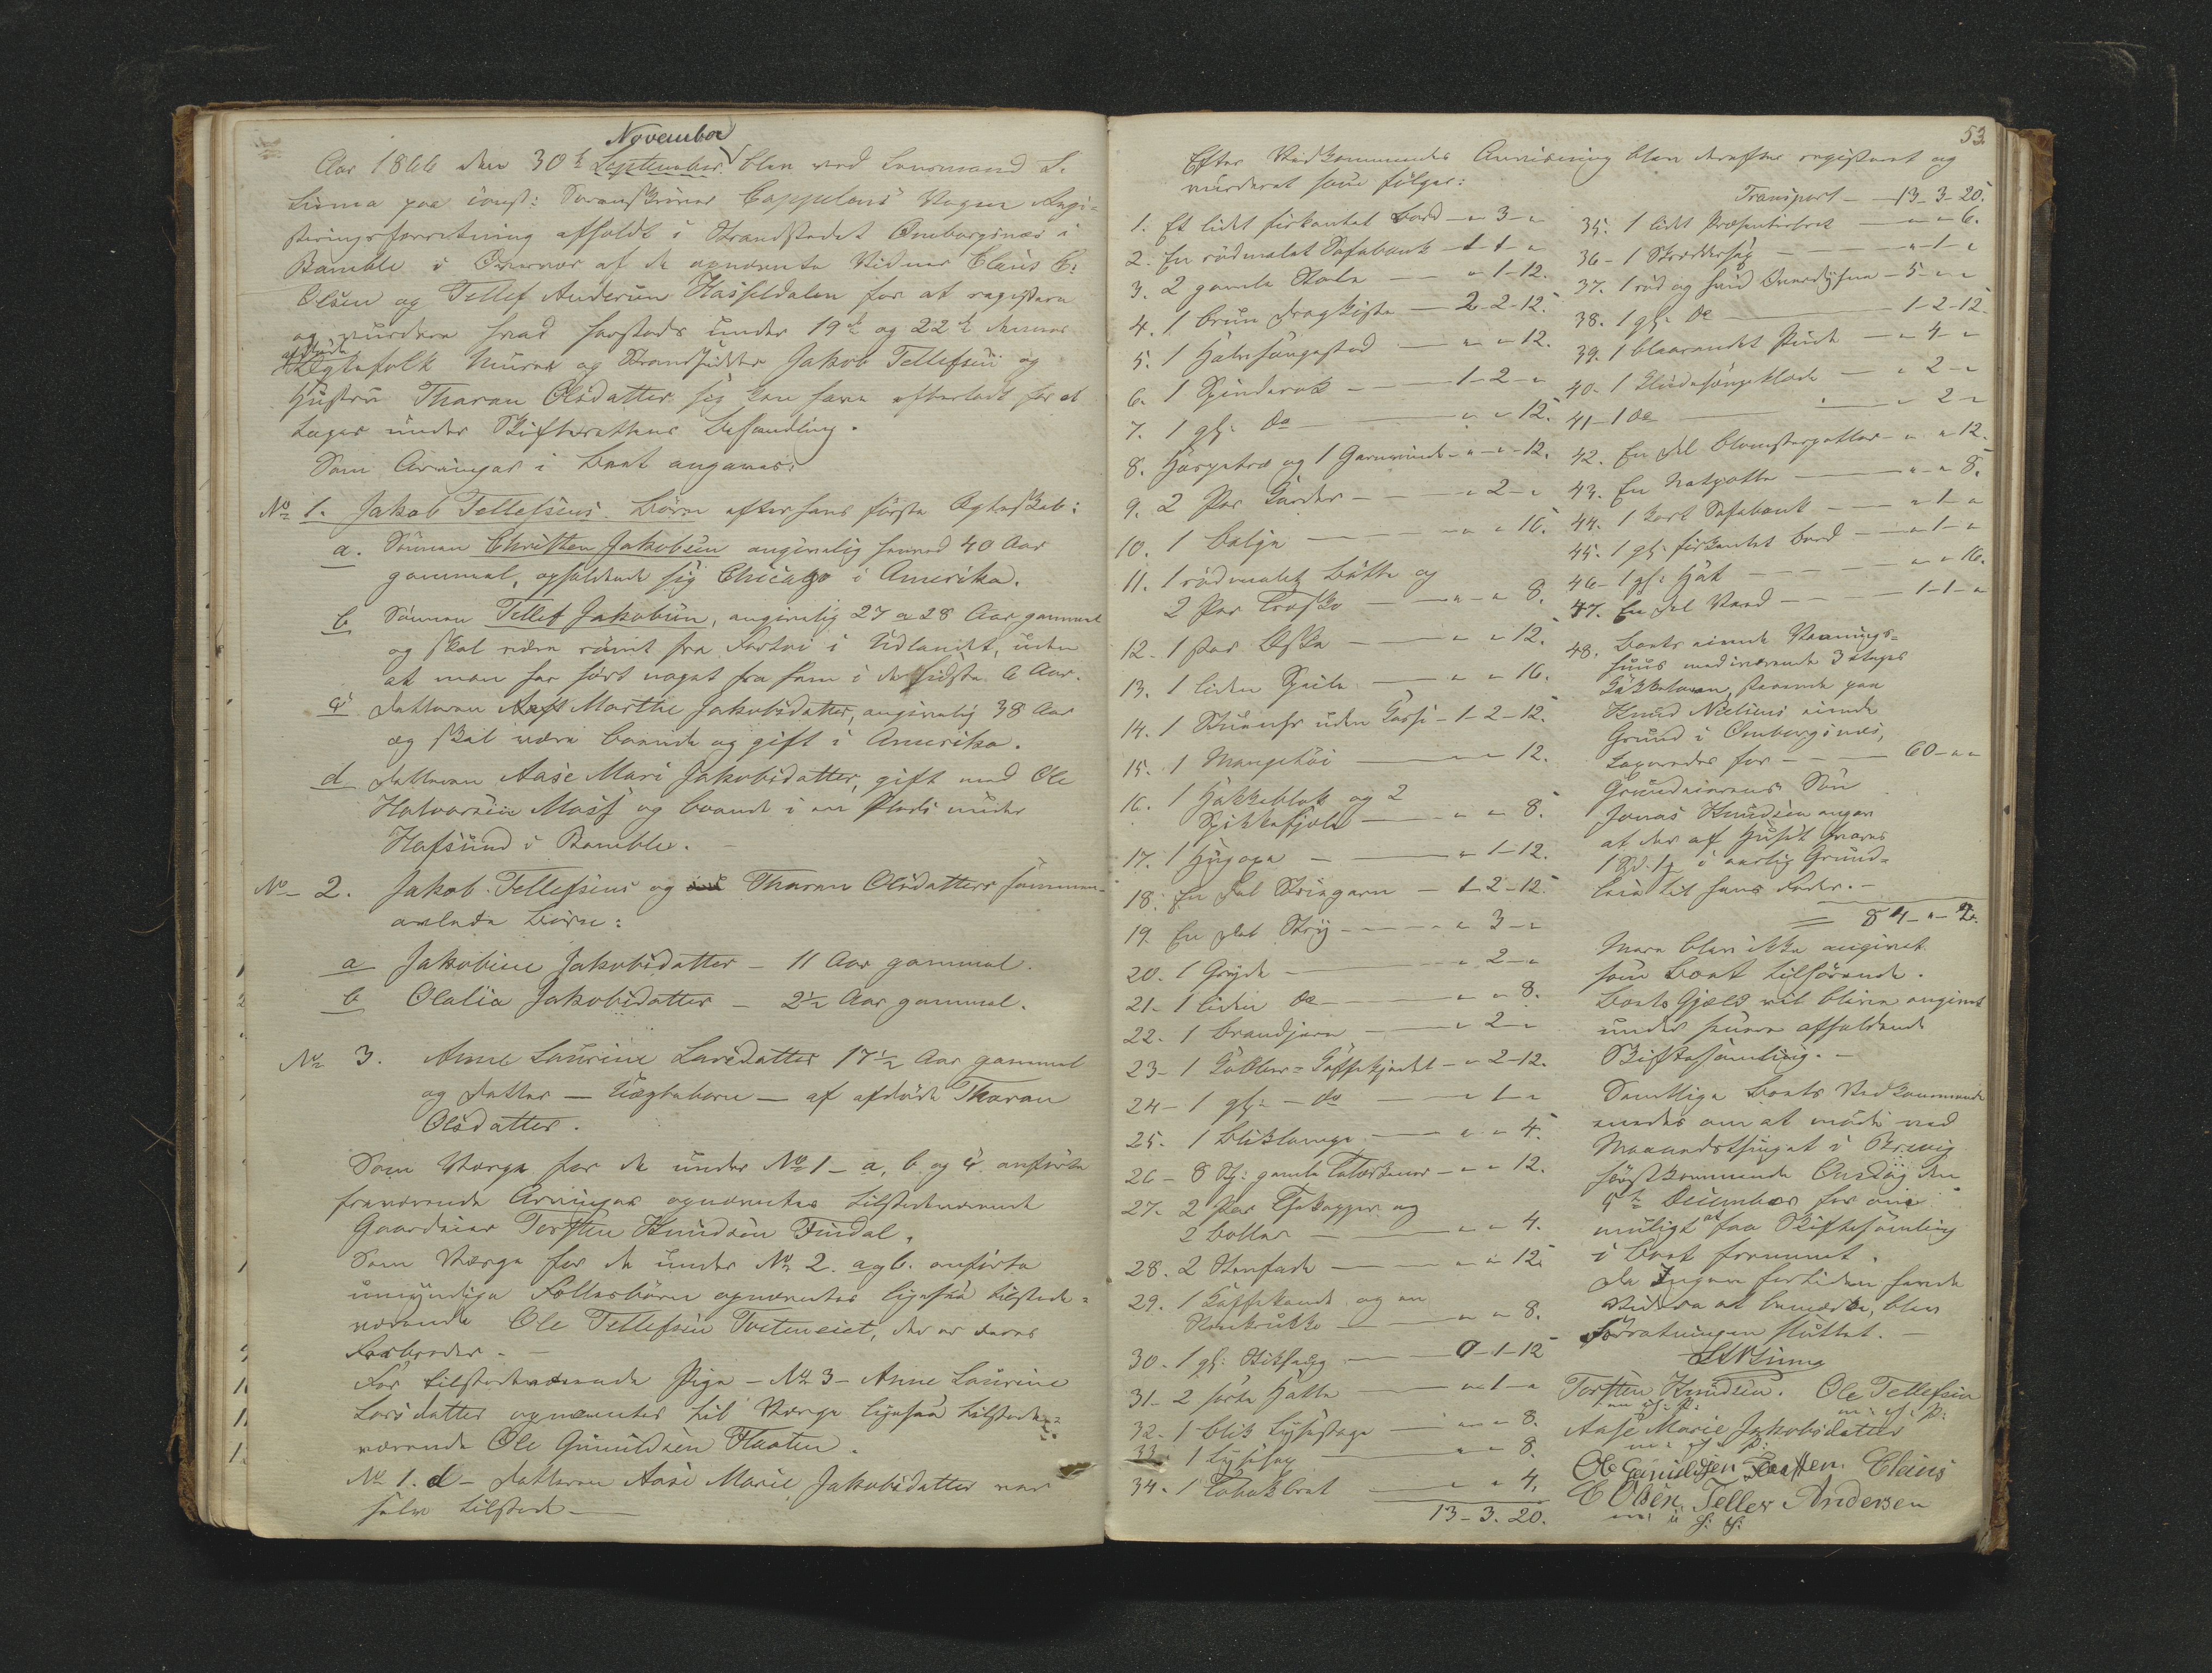 November
Aar 1866 den 30te September blev ved Lensmand L.
Linna paa const: Sorenskriver Cappelens Vegne Regi-
streringsforretning afholdt i Strandstedet Omborgsnæs i
Bamble i Overvær af de opnævnte Vidner Claus C.
Olsen og Tellef Andersen Hasseldalen for at registrere
og vurdere hvad forstods under 19de og 22de dennes
afdøde
Ægtefolk Murer og Strandsidder Jakob Tellefsen og
Hustru Tharan Olsdatter sig kan have efterladt for at
tages under Skifterettens Behandling.
Som Arvinger i Boet angaves:
No 1. Jakob Tellefsens Børn efter hans første Ægteskab:
a. Sønnen Christen Jakobsen angivelig henved 40 Aar
gammel, opholdende sig Chicago i Amerika.
b Sønnen Tellef Jakobsen, angivelig 27 a 28 Aar gammel
og skal være rømt fra Fartøi i Udlandet, uden
at man har hørt noget fra ham i de sidste 6 Aar.
c Datteren Marthe Jakobsdatter, angivelig 38 Aar
og skal være boende og gift i Amerika.
d Datteren Aase Mari Jakobsdatter, gift med Ole
Halvorsen Moss og boende i en Plads under
Hafsund i Bamble.
No 2. Jakob Tellefsens og Tharan Olsdatters sammen-
avlede Børn:
a Jakobine Jakobsdatter – 11 Aar gammel.
b Olalia Jakobsdatter – 2½ Aar gammel.
No 3. Anne Laurine Larsdatter 17½ Aar gammel
og Datter – Uægtebarn – af afdøde Tharan
Olsdatter.
Som Værge for de under No 1 – a, b og c anførte
fraværende Arvinger opnævntes tilstedeværende
Gaardeier Torsten Knudsen Findal.
Som Værge for de under No 2. a og b. anførte
umyndige Fellesbørn opnævntes ligesaa tilstede-
værende Ole Tellefsen Tveteneiet, der er deres
Farbroder. –
For tilstedeværende Pige – No 3 – Anne Laurine
Larsdatter opnævntes til Værge ligesaa tilstede-
værende Ole Gunuldsen Flaaten.
No 1. d – Datteren Aase Marie Jakobsdatter var
selv tilstede –
53.
Efter Vedkommendes Anvisning blev derefter registreret og
vurderet som følger:
1. Et lidet firkantet Bord – " 3 – "
2. En rødmalet Sofabænk – 1 – 1 – "
3. 2 gamle Stole – " 1 – 12.
4. 1 brun Dragkiste – 2 – 2 – 12.
5. 1 Halvsengested – " – " 12.
6. 1 Spinderok – 1 – 2 – "
7. 1 gl: do – " – " 12.
8. Haspetræ og 1 Garnvinde – " – " – 12.
9. 2 Par Karder – " 2 – "
10. 1 Balje – " – " 16.
11. 1 rødmalet Bøtte og
2 Par Træsko – " – " 8.
12. 1 Par Æske – " – " 12.
13. 1 liden Speil – " – " 16.
14. 1 Stueuhr uden Kasse – 1 – 2 – 12.
15. 1 Mangetøi – " 12.
16. 1 Hakkeblok og 2
Spikkefjøle – " – " 8.
17. 1 Hugøxe – " 1 – 12.
18. En Del Strigarn – 1 – 2 – 12.
19. En Del Stry – " 3 – "
20. 1 Gryde – " 2 – "
21 – 1 liden do – " – " 8.
22. 1 Brandjern – " 2 – "
23 – 1 Kobber-Kaffekjedel – " 2 – 12.
24 – 1 gl: – do – " 1 – "
25. 1 Bliklampe – " – " 4.
26 – 8 St: gamle Talærkener – " – " 12.
27. 2 Par Thekopper og
2 Boller – " – " 4.
28. 2 Stenfade – " – " 12
29. 1 Kaffekande og en
Stenkrukke – " – " 8.
30. 1 gl: Stiksaug – 0 – 1 – 12
31 – 2 sorte Hatte – " 1 – "
32 – 1 blik Lysestage – " – " 8.
33. 1 Lysesax – " – " 8.
34. 1 Tobakbret – " – " 4.
13 – 3. 20.
Transport – 13 – 3 – 20.
35. 1 lidet Præsenterbret – " – " 6.
36 – 1 Skræddersax – " 1 – "
37. 1 rød og hvid Overdyne – 5 – " – "
38. 1 gl: do – 1 – 2 – 12.
39. 1 blaarandet Pude – " 4 – "
40. 1 Kludesengeklæde – " 2 – "
41 – 1 do – " 2 – "
42. En Del Blomsterpotter – " – " 12.
43. En Natpotte – " – " 8.
44. 1 kort Sofabænk – " 1 – "
45. 1 gl: firkantet Bord – " 1 – "
46 – 1 gl: Hat – " – " 16.
47. En Del Veed – 1 – 1 – "
48. Boets eiende Vaanings-
huus med iværende 3 etages
Kakkelovn, staaende paa
Knud Nielsens eiende
Grund i Omborgsnæs,
taxeredes for – 60 – " "
Grundeierens Søn
Jonas Knudsen angav
at der af Huset svares
1 Spd. 12 i aarlig Grund-
leie til hans Fader. –
= 84 – " – 2.
Mere blev ikke angivet
som Boet tilhørende.
Boets Gjæld vil blive angivet
under senere afholdende
Skiftesamling. –
Samtlige Boets Vedkommende
anmodes om at møde ved
Maanedsthinget i Brevig
førstkommende Onsdag den
5te December for om
muligt at faa Skiftesamling
i Boet fremmet.
Da Ingen fortiden havde
Videre at bemærke, blev
Forretningen sluttet. –
Torsten Knudsen. Ole Tellefsen
m: f: P: m: f: P:
Aase Marie Jakobsdatter
m: f: P:
Ole Gunuldsen Flaatten. Claus
C Olsen, Tellev Andersen
m: f: P: